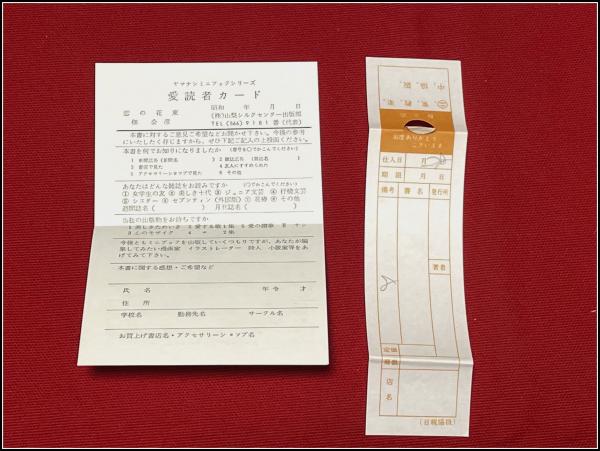 ヤマナシミニブックシリーズ
愛読者カード
昭和 年 月 日
恋の花束
(株)山梨シルクセンター出版部
TEL (566) 9181 番 (代表)
本書に対するご意見ご希望などお聞かせ下さい。今後の参考
にいたしたく存じますから、ぜひ下記ご記入の上投函ください。
本書を何でお知りになりましたか
1 新聞広告(新聞名 ) 2 雑誌広告(雑誌名 )
3 書店で見た 4 友人にすすめられた
5 アクセサリーショップで見た 6 その他
あなたはどんな雑誌をお読みですか (○でかこんでください)
① 女学生の友 ② 美しき十代 ③ ジュニア文芸 ④ 抒情文芸
⑤ シスター ⑥ セブンティン (外国版) ⑦ 花椿 ⑧ その他
週間誌名( ) 月刊誌名( )
当社の出版物をお持ちですか
今後ともミニブックを出版していくつもりですが、あなたが編
集してみたい漫画家 イラストレーター 詩人 小説家等をあ
げてみて下さい。
本書に関する感想・ご希望など
氏名 年令 才
住所
学校名 勤務先名 サークル名
お買上げ書店名・アクセサリーショップ名
毎度ありがとう
ございます
仕入日 月 日
期限 月 日
備考 書名 発行所
著者
定価
冊数
店名
(日販協扱)